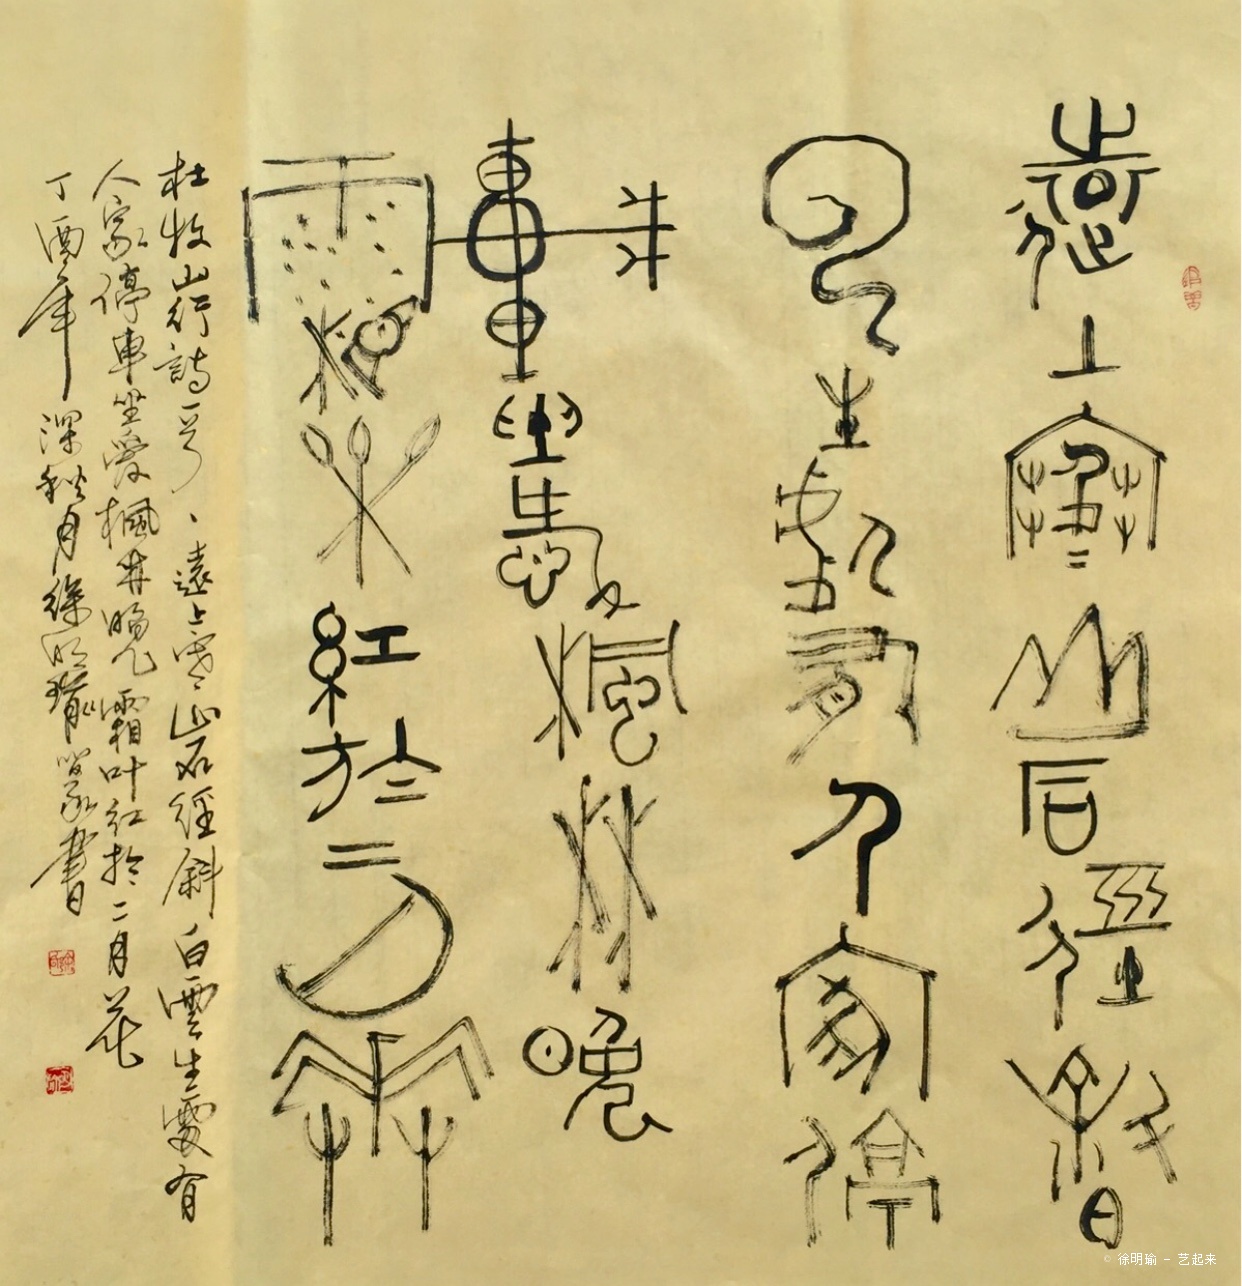 遠上寒山石徑斜白
云生處有人家停
車坐愛楓林晚
霜葉紅於二月花
杜牧山行詩、遠上寒山石徑斜白雲生處有
人家停車坐愛楓林晚霜叶红於二月花
丁酉年深秋月徐明瑜篆書
© 徐明瑜 - 艺起来